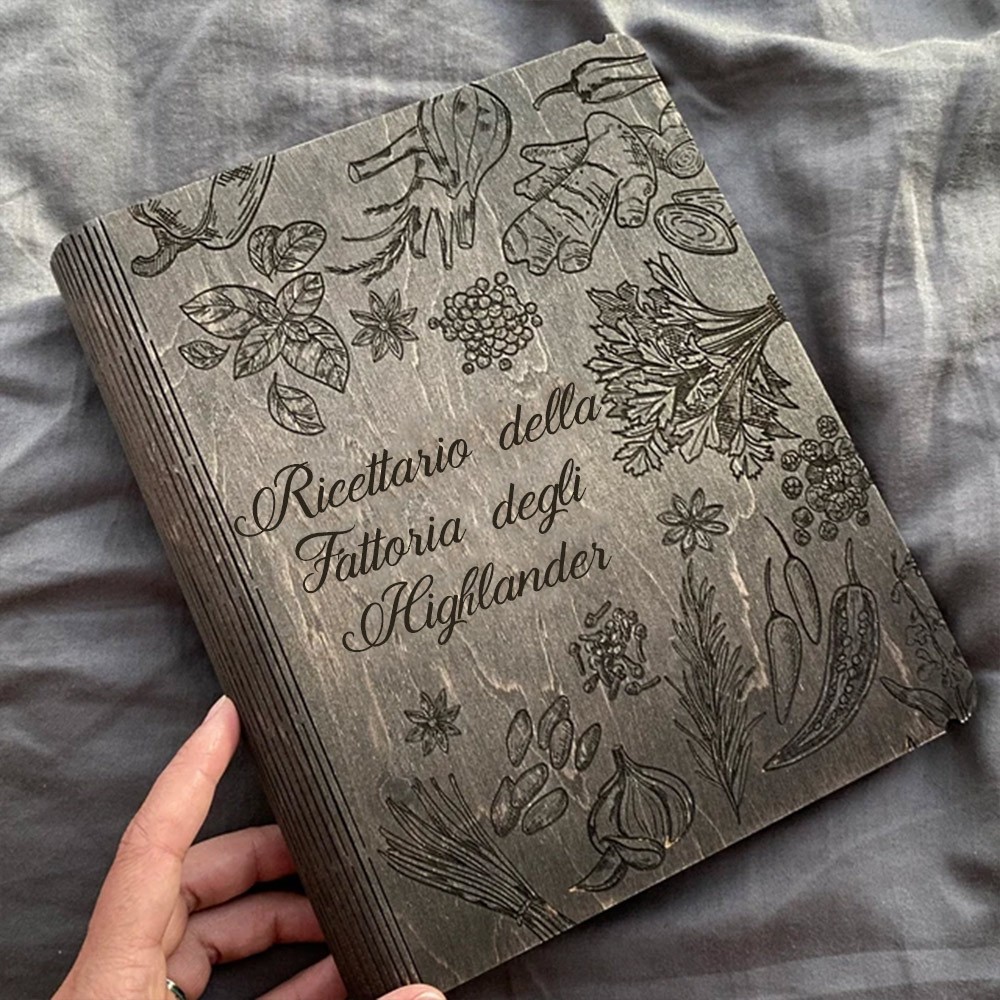 Ricettario della
Fattoria degli
Highlander